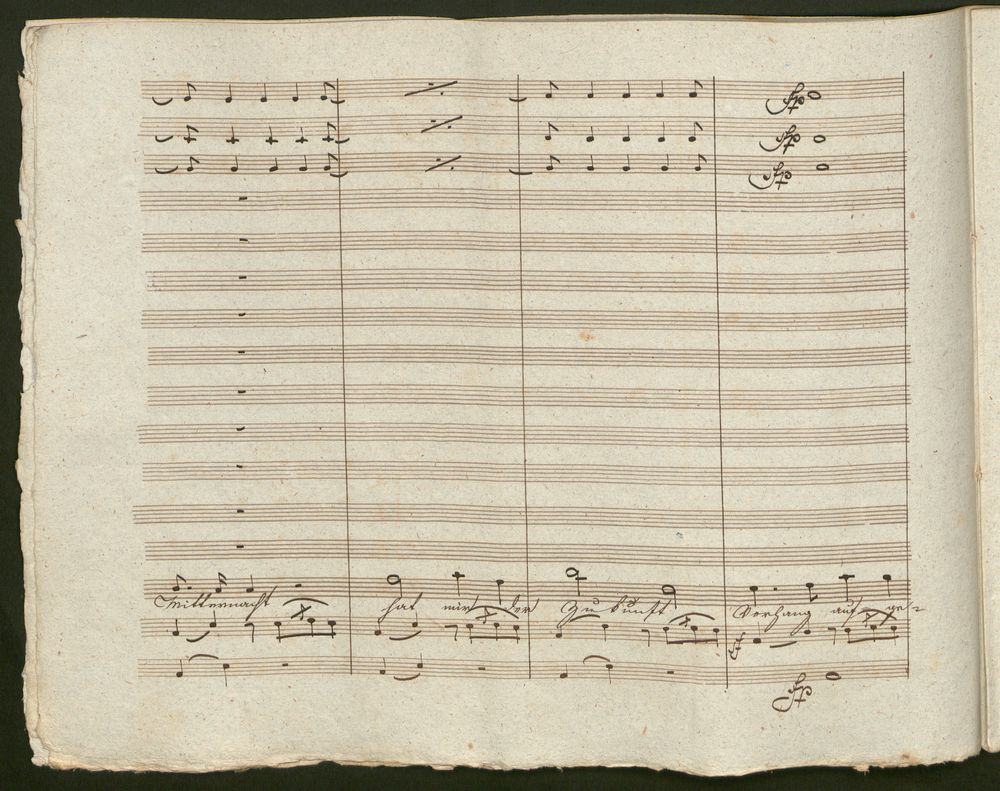 fp
fp
fp
Mitternacht hat mir der Zukunft Vorhang auf ge-
sf
fp